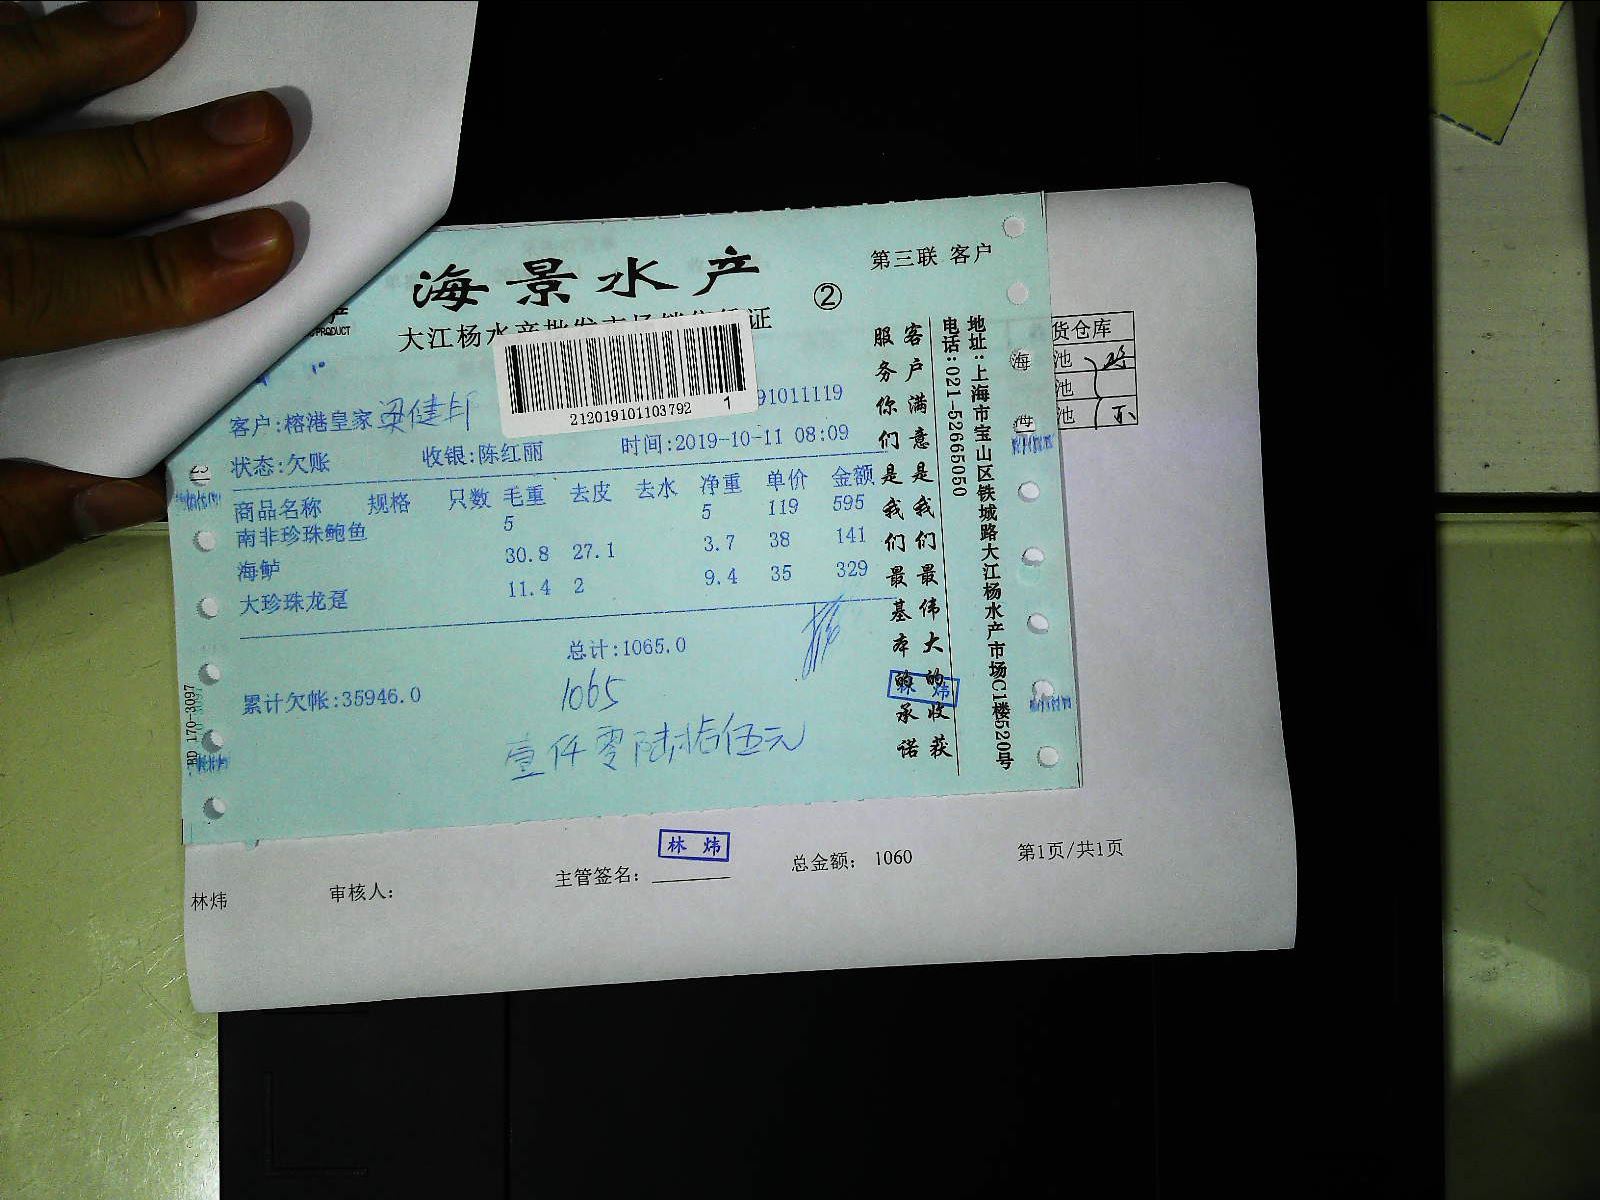 海景水产
第三联 客户
②
PRODUCT
大江杨水产批发市场销售凭证
212019101103792 1
91011119
客户:榕港皇家
状态:欠账 收银:陈红丽 时间:2019-10-11 08:09
商品名称 规格 只数 毛重 去皮 去水 净重 单价 金额
南非珍珠鲍鱼 5 5 119 595
海鲈 30.8 27.1 3.7 38 141
大珍珠龙趸 11.4 2 9.4 35 329
总计:1065.0
累计欠帐:35946.0
1065
壹仟零陆拾伍元
客户满意是我们最伟大的收获
服务你们是我们最基本的承诺
地址:上海市宝山区铁城路大江杨水产市场C1楼520号
电话:021-52665050
林 炜
BD 170-3097
货仓库
海 池
池
海 池
林 炜
林炜 审核人: 主管签名: 总金额: 1060 第1页/共1页